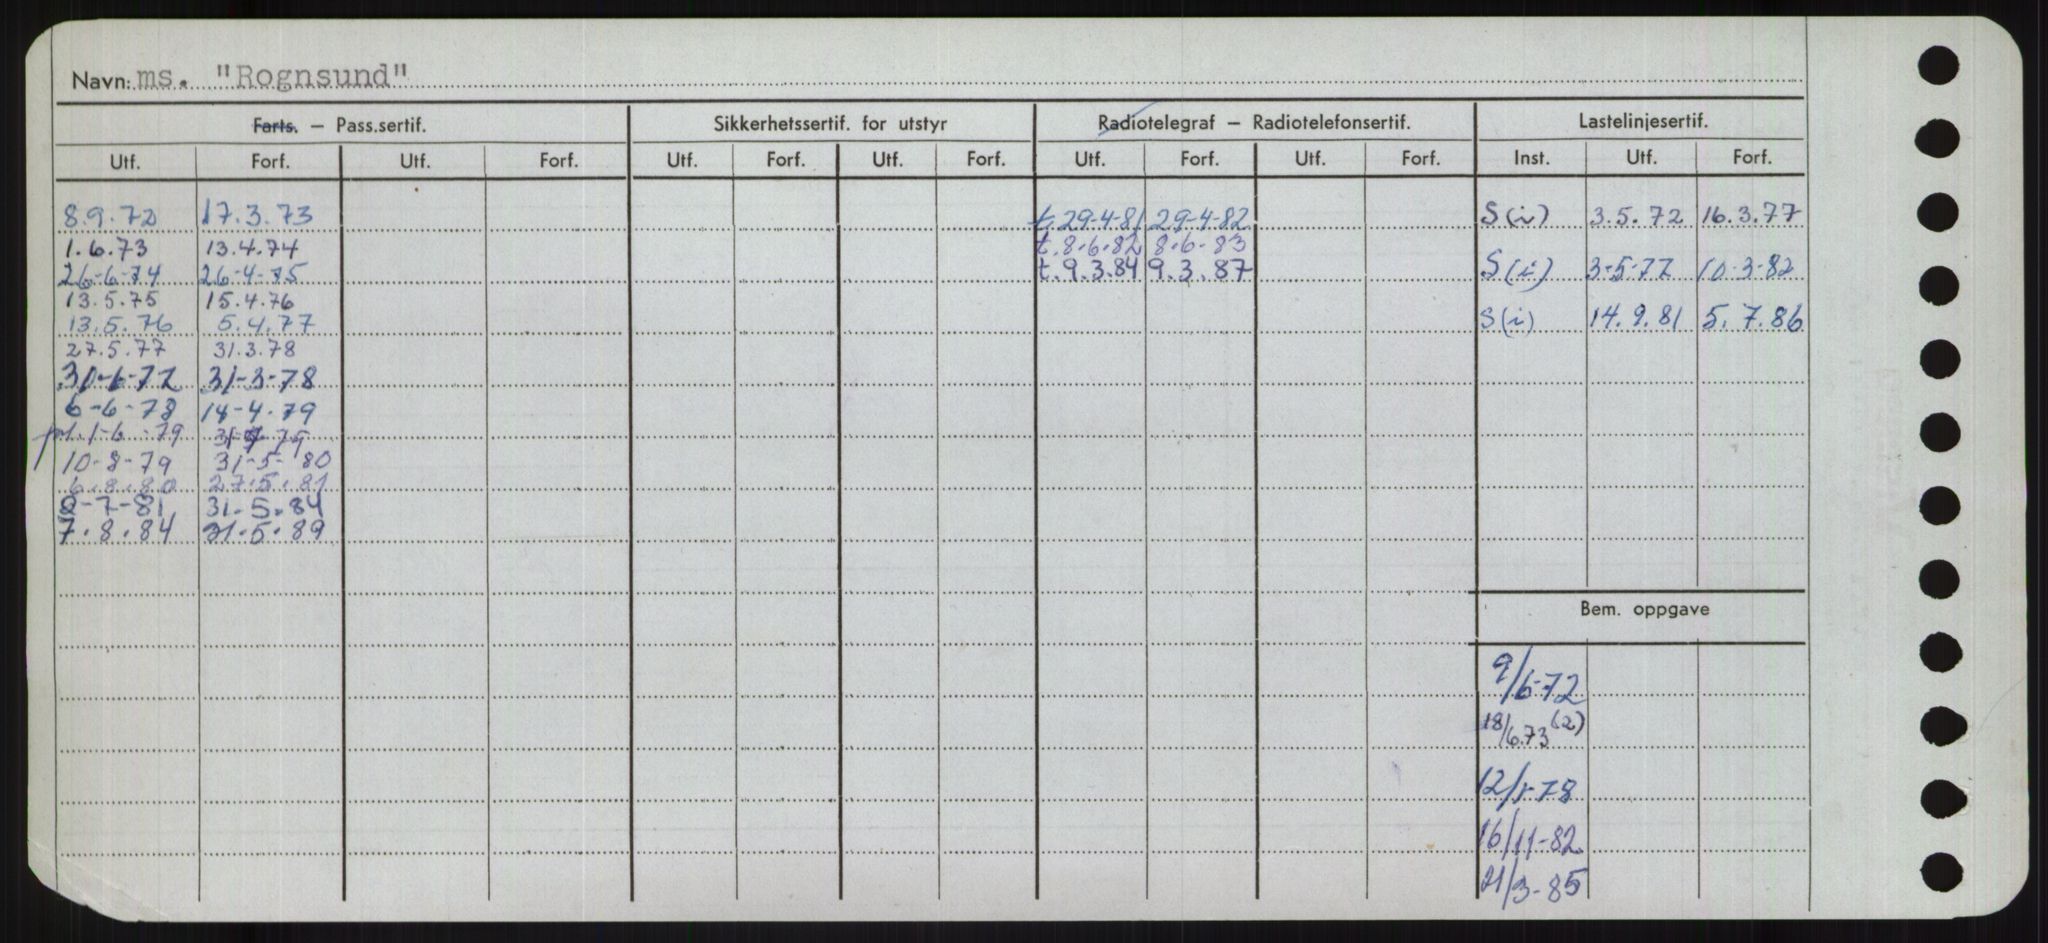 Navn: ms. "Rognsund"
Farts. — Pass.sertif. Sikkerhetssertif. for utstyr Radiotelegraf — Radiotelefonsertif. Lastelinjesertif.
Utf. Forf. Utf. Forf. Utf. Forf. Utf. Forf. Utf. Forf. Utf. Forf. Inst. Utf. Forf.
8.9.72 17.3.73 t.29-4-81 29-4-82 S(i) 3.5.72 16.3.77
1.6.73 13.4.74 t.8.6.82 8.6.83
26-6-74 26-4-75 t.9.3.84 9.3.87 S(i) 3-5-77 10-3-82
13.5.75 15.4.76
13.5.76 5.4.77 S(i) 14.9.81 5.7.86
27.5.77 31.3.78
30-6-77 31-3-78
6-6-78 18-4-79
1-6-79
10-8-79 31-5-80
6.8.80 27.5.81
8-7-81 31.5.84
7.8.84 31.5.89
Bem. oppgave
9/6-72
18/6.73 (2)
12/1-78
16/11-82
21/3-85